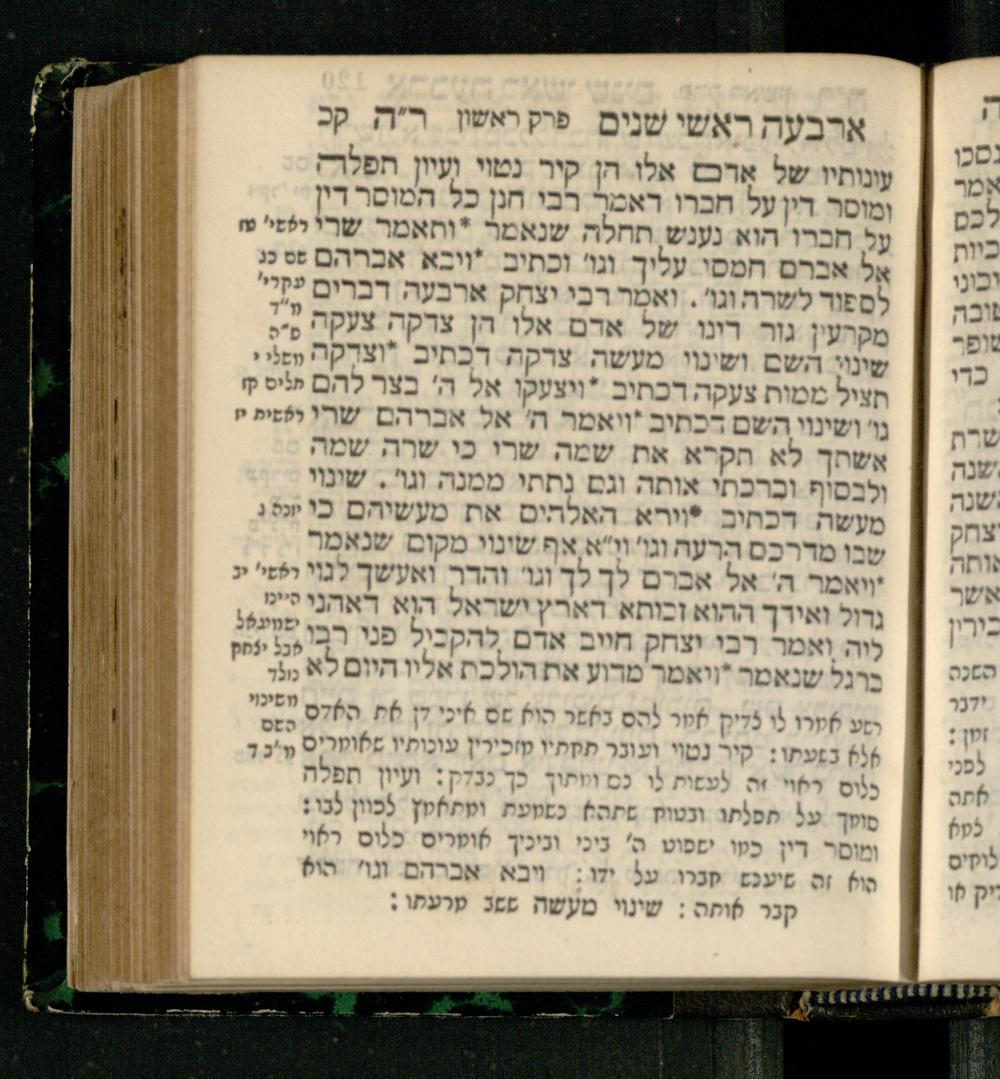 ארבעה ראשי שנים פרק ראשון ר״ה קכ
עונותיו של אדם אלו הן קיר נטוי ועיון תפלה
ומוסר דין על חברו דאמר רבי חנן כל המוסר דין
על חברו הוא נענש תחלה שנאמר *ותאמר שרי
אל אברם חמסי עליך וגו׳ וכתיב *ויבא אברהם
לספוד לשרה וגו׳. ואמר רבי יצחק ארבעה דברים
מקרעין גזר דינו של אדם אלו הן צדקה צעקה
שינוי השם ושינוי מעשה צדקה דכתיב *וצדקה
תציל ממות צעקה דכתיב *ויצעקו אל ה׳ בצר להם
גו׳ ושינוי השם דכתיב *ויאמר ה׳ אל אברהם שרי
אשתך לא תקרא את שמה שרי כי שרה שמה
ולבסוף וברכתי אותה וגם נתתי ממנה וגו׳. שינוי
מעשה דכתיב *וירא האלהים את מעשיהם כי
שבו מדרכם הרעה וגו׳ וי״א אף שינוי מקום שנאמר
*ויאמר ה׳ אל אברם לך לך וגו׳ והדר ואעשך לגוי
גדול ואידך ההוא זכותא דארץ ישראל הוא דאהני
ליה ואמר רבי יצחק חייב אדם להקביל פני רבו
ברגל שנאמר *ויאמר מדוע את הולכת אליו היום לא
רשע אמרו לו צדיק אמר להם באשר הוא שם איני דן את האדם
אלא בשעתו: קיר נטוי ועובר תחתיו מזכירין עונותיו שאומרים
כלום ראוי זה לעשות לו נס ומתוך כך נבדק: ועיון תפלה
סומך על תפלתו ובטוח שתהא נשמעת ומתאמץ לכוון לבו:
ומוסר דין כמו ישפוט ה׳ ביני וביניך אומרים כלום ראוי
הוא זה שיענש חברו על ידו: ויבא אברהם וגו׳ הוא
קבר אותה: שינוי מעשה ששב מרעתו:
ראשי׳ טז
שם כג
עקרי׳
מ״ד
פ״ה
משלי י
תלים קז
ראשית יז
יונה ג
ראשי׳ יב
היינו
ישמעאל
אבל יצחק
נולד
משינוי
השם
מ״ב ד